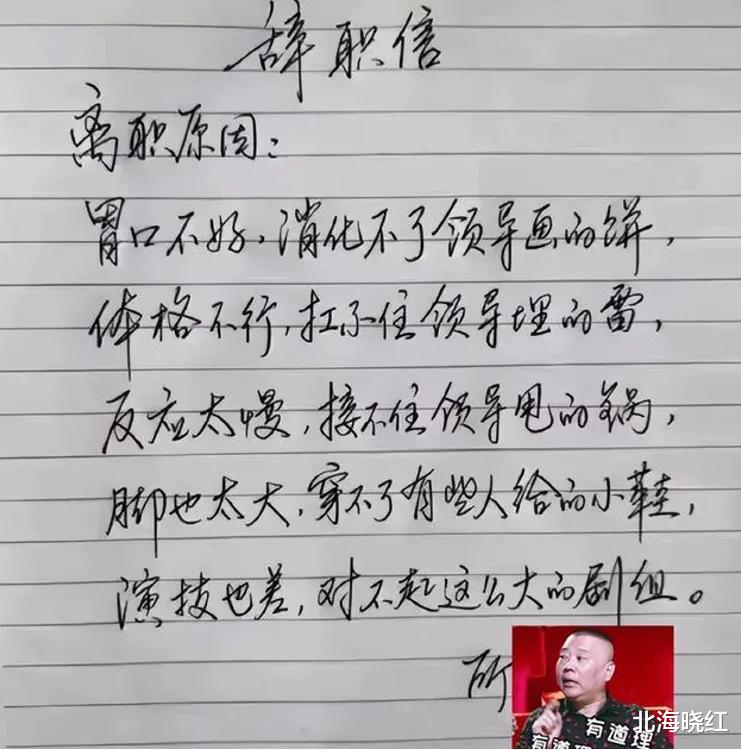 辞职信
离职原因：
胃口不好，消化不了领导画的饼，
体格不行，扛不住领导埋的雷，
反应太慢，接不住领导甩的锅，
脚也太大，穿不了有些人给的小鞋，
演技也差，对不起这么大的剧组。
所
有道理
有道理
北海晓红